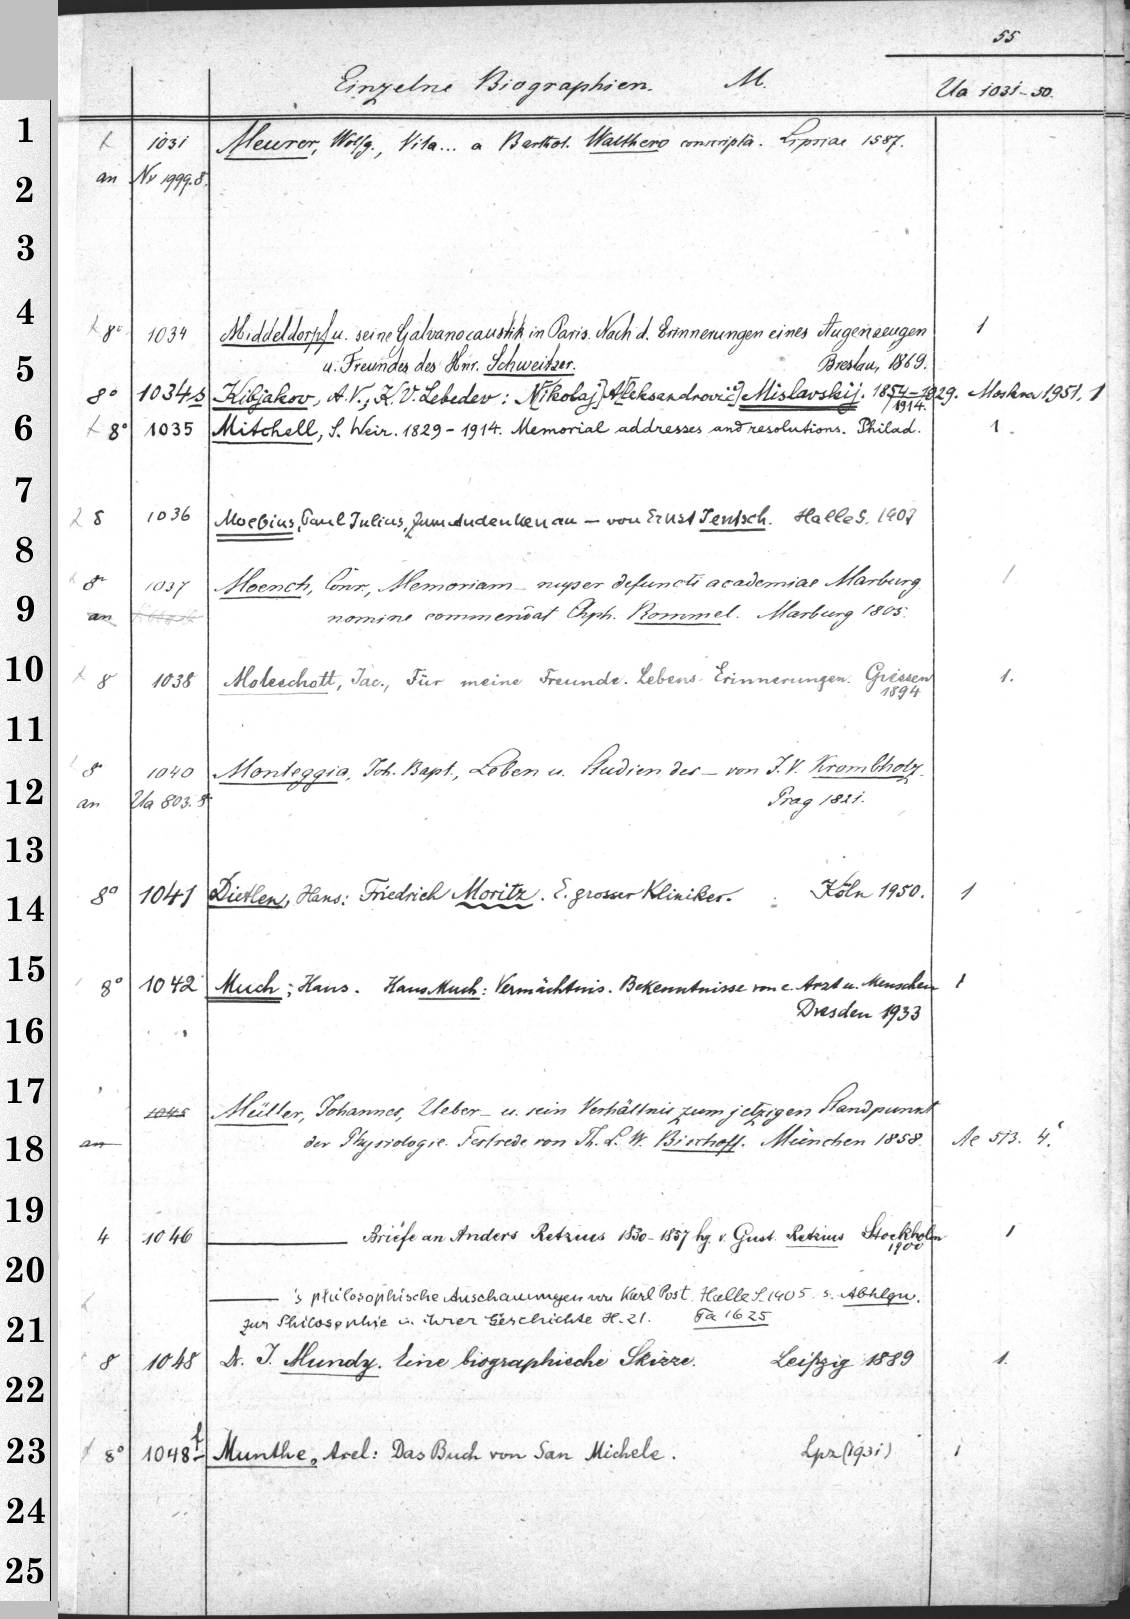 55
Einzelne Biographien. M. Ua 1031-50.
1 1031 Meurer, Wolfg., Vita... a Barthol. Walthero conscripta. Lipsiae 1587.
2 an Nv 1999.8.
3
4 8° 1034 Middeldorpf u. seine Galvanocaustik in Paris. Nach d. Erinnerungen eines Augenzeugen 1
5 u. Freundes des Hnr. Schweitzer. Breslau, 1869.
8° 1034s Kibjakov, A.V.; K.V. Lebedev: N[ikolaj] A[leksandrovič] Mislavskij. 1854-1929. Moskva 1951. 1
1914.
6 8° 1035 Mitchell, S. Weir. 1829-1914. Memorial addresses and resolutions. Philad. 1.
7
8 1036 Moebius, Paul Julius, Zum Andenken an – von Ernst Jentsch. Halle S. 1907
8
8° 1037 Moench, Conr., Memoriam – nuper defuncti academiae Marburg. 1
9 an nomine commendat Chph. Rommel. Marburg 1805.
10 8 1038 Moleschott, Jac., Für meine Freunde. Lebens-Erinnerungen. Giessen 1.
1894
11
8° 1040 Monteggia, Joh. Bapt., Leben u. Studien des – von J. V. Krombholz.
12 an Ua 803. 8° Prag 1821.
13
14 8° 1041 Dietlen, Hans: Friedrich Moritz. E. grosser Kliniker. Köln 1950. 1
15 8° 1042 Much; Hans. Hans Much: Vermächtnis. Bekenntnisse von e. Arzt u. Menschen 1
16 Dresden 1933
17 1045 Müller, Johannes, Ueber – u. sein Verhältnis zum jetzigen Standpunkt
18 an der Physiologie. Festrede von Th. L. W. Bischoff. München 1858. Ae 513. 4°.
19
4 1046 ——— Briefe an Anders Retzius 1830-1857 hg. v. Gust. Retzius Stockholm 1
1900
20
——— 's philosophische Anschauungen von Karl Post. Halle S. 1905. s. Abhlgn.
21 zur Philosophie u. ihrer Geschichte H. 21. Fa 1625
8 1048 Dr. J. Mundy. Eine biographische Skizze. Leipzig 1889 1.
22
23 8° 1048f Munthe, Axel: Das Buch von San Michele. Lpz (1931) 1
24
25